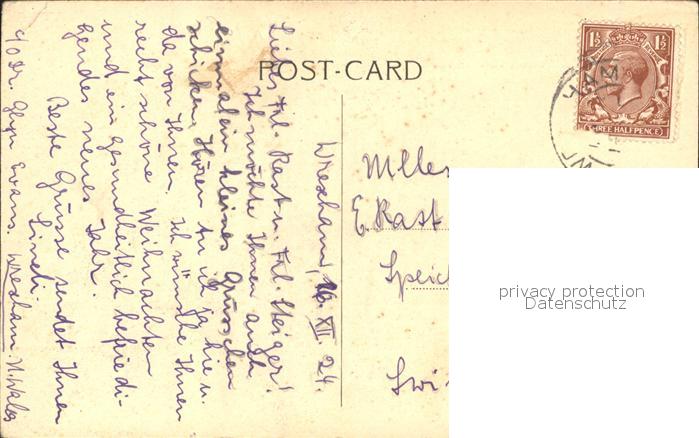 POST-CARD
1½ 1½
THREE HALFPENCE
Wrexham, 16. XII. 24.
Liebes Frl. Rast u. Frl. Steiger!
Ich möchte Ihnen auch
einmal ein kleines Grüsschen
schicken. Hören tu ich ja hie u.
da von Ihnen. Ich wünsche Ihnen
recht schöne Weihnachten
und ein gesundheitlich befriedi-
gendes neues Jahr.
Beste Grüsse sendet Ihnen
Lineli.
c/o Dr. Glyn Evans. Wrexham. N. Wales
Mlles
E. Rast
Speic
Swi
privacy protection
Datenschutz